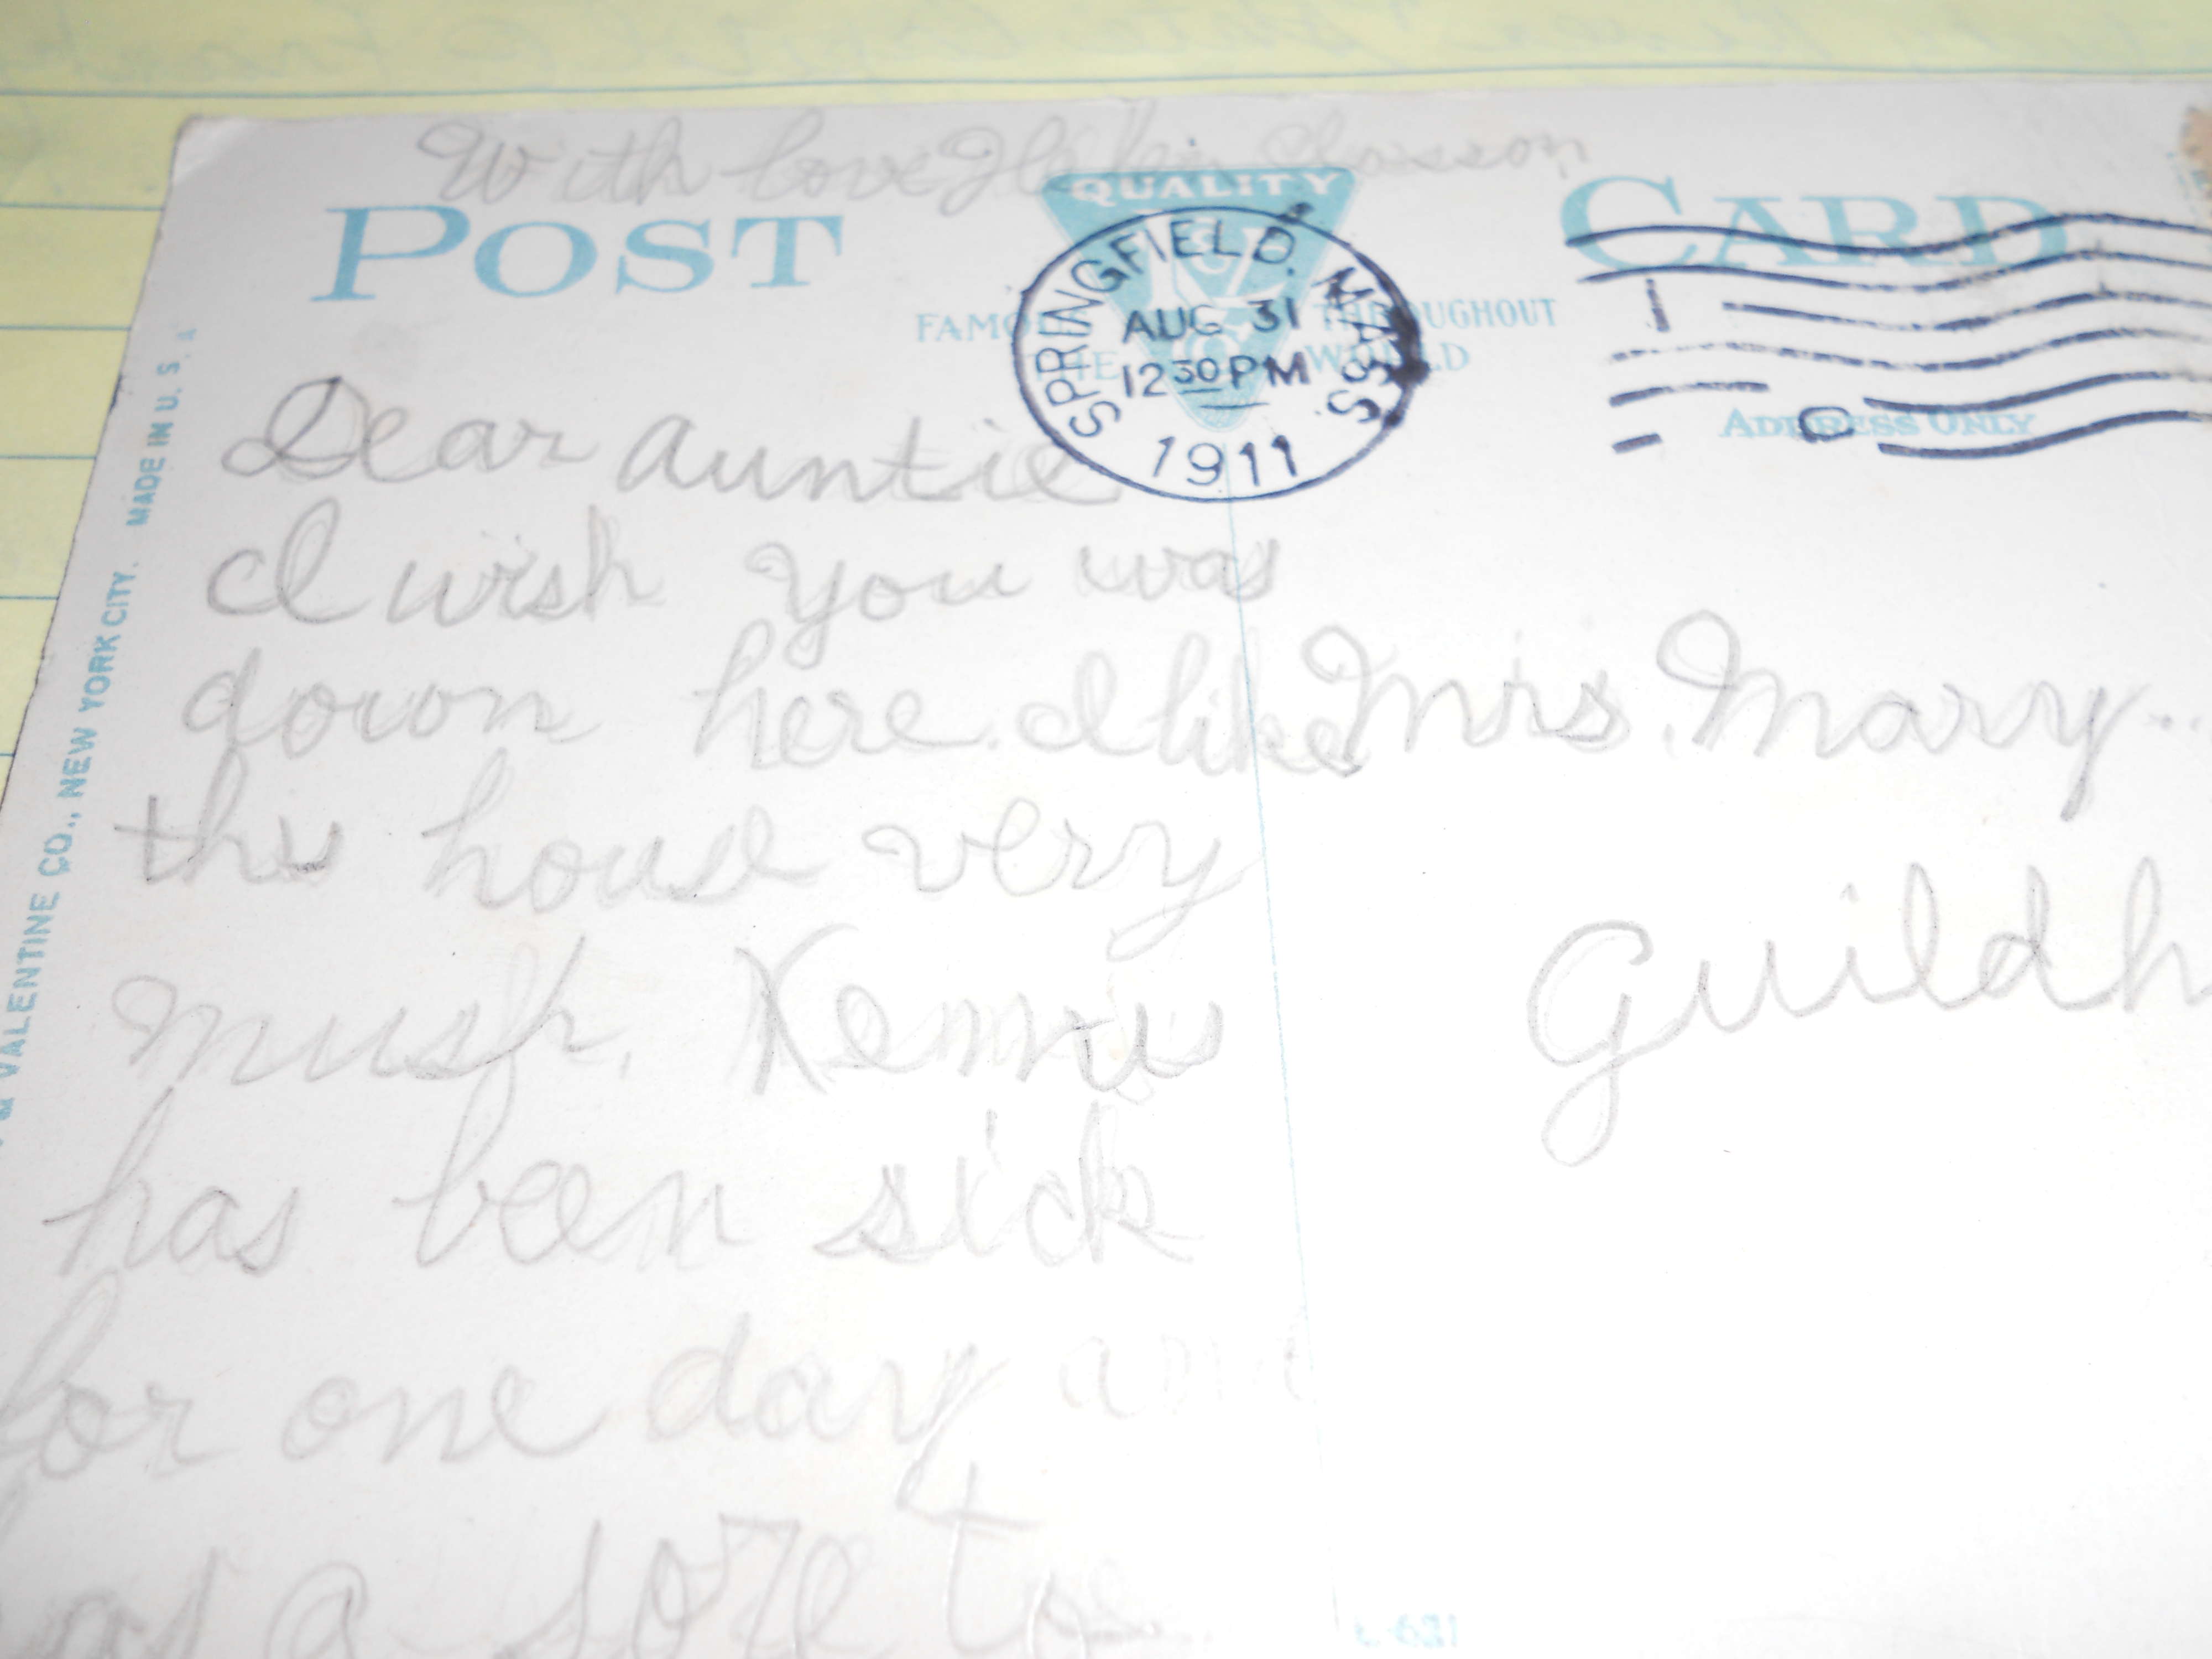 With love Helen
POST CARD
QUALITY
V & S
FAMOUS THROUGHOUT
THE WORLD
SPRINGFIELD, MASS.
AUG 31
12 30 PM
1911
ADDRESS ONLY
VALENTINE CO., NEW YORK CITY. MADE IN U. S. A
Dear auntie
I wish you was
down here. I like
the house very
much.
has been sick
for one day and
has a sore toe.
Mrs. Mary
Guildh